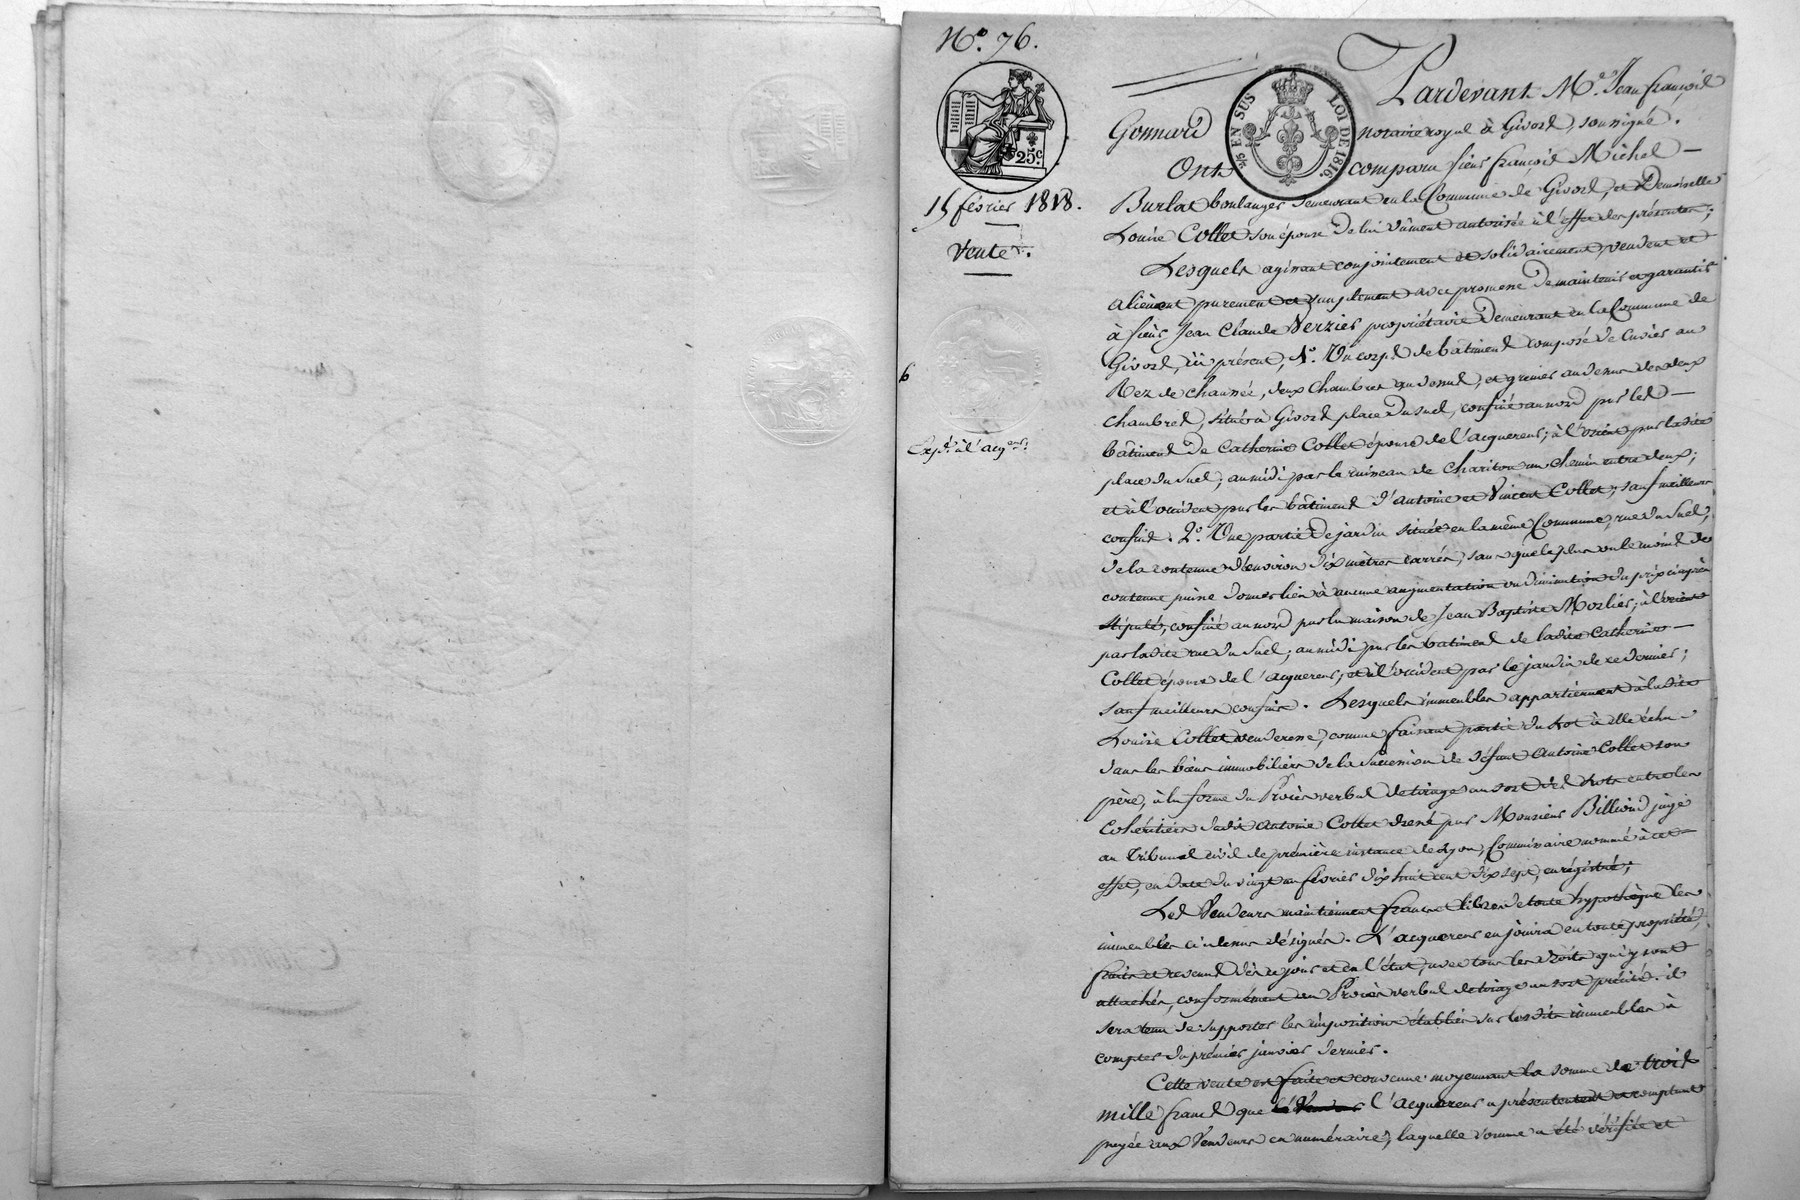 N.o 76.
25c.
15 février 1818.
Vente.
Exp.é à l'acq.eur
EN SUS LOI DE 1816.
Pardevant M.e Jean françois
Gonnard notaire royal à Givors, soussigné.
Ont comparu sieur françois Michel
Burlat boulanger demeurant en la Commune de Givors, et Demoiselle
Louise Collet son épouse de lui dûment autorisée à l'effet des présentes;
Lesquels agissant conjointement et solidairement, vendent et
aliènent purement et simplement avec promesse de maintenir et garantir
à sieur Jean Claude Verzier propriétaire demeurant en la Commune de
Givors, ici présent, 1.o Un corps de bâtiment composé de Cuvier au
Rez de chaussée, deux Chambres au dessus, et grenier au dessus des deux
chambres, situé à Givors place du suel, confiné au nord par les
bâtiment de Catherine Collet épouse de l'acquereur; à l'orient par ladite
place du Suel; au midi par le ruisseau de Chariton un chemin entre deux;
et à l'occident par les bâtiment d'Antoine et Vincent Collet; sauf meilleurs
confins. 2.o Une partie de jardin située en la même Commune, rue du Suel,
de la contenue d'environ dix mètres carrés, sans que le plus ou le moins de
contenue puisse donner lieu à aucune augmentation ou diminution du prix ci après
stipulé, confiné au nord par la maison de Jean Baptiste Morlier; à l'orient
par ladite rue du Suel; au midi par les batiment de ladite Catherine
Collet épouse de l'acquereur; et à l'occident par le jardin de ce dernier;
sauf meilleurs confins. Lesquels immeubles appartiennent à ladite
Louise Collet venderesse, comme faisant partie du lot à elle échu
dans les biens immobiliers de la succession de défunt Antoine Collet son
père, à la forme du Procès verbal de tirage au sort des lots entre les
cohéritiers dudit Antoine Collet dressé par Monsieur Billioud juge
au Tribunal civil de première instance de Lyon, Commissaire nommé à cet
effet, en date du vingt un février dix huit cent dix sept, enrégistré;
Les Vendeurs maintiennent francs et libres de toute hypothèque les
immeubles ci dessus désignés. L'acquereur en jouira en toute propriété,
fruits et revenus dès ce jour et en l'état, avec tous les droits qui y sont
attachés, conformément au Procès verbal de tirage au sort précité. il
sera tenu de supporter les impositions établies sur lesdits immeubles à
compter du prémier janvier dernier.
Cette vente est faite et convenue moyennant la somme de trois
mille francs que l'acquereur a présentement et comptant
payée aux Vendeurs en numéraire, laquelle somme a été vérifiée et